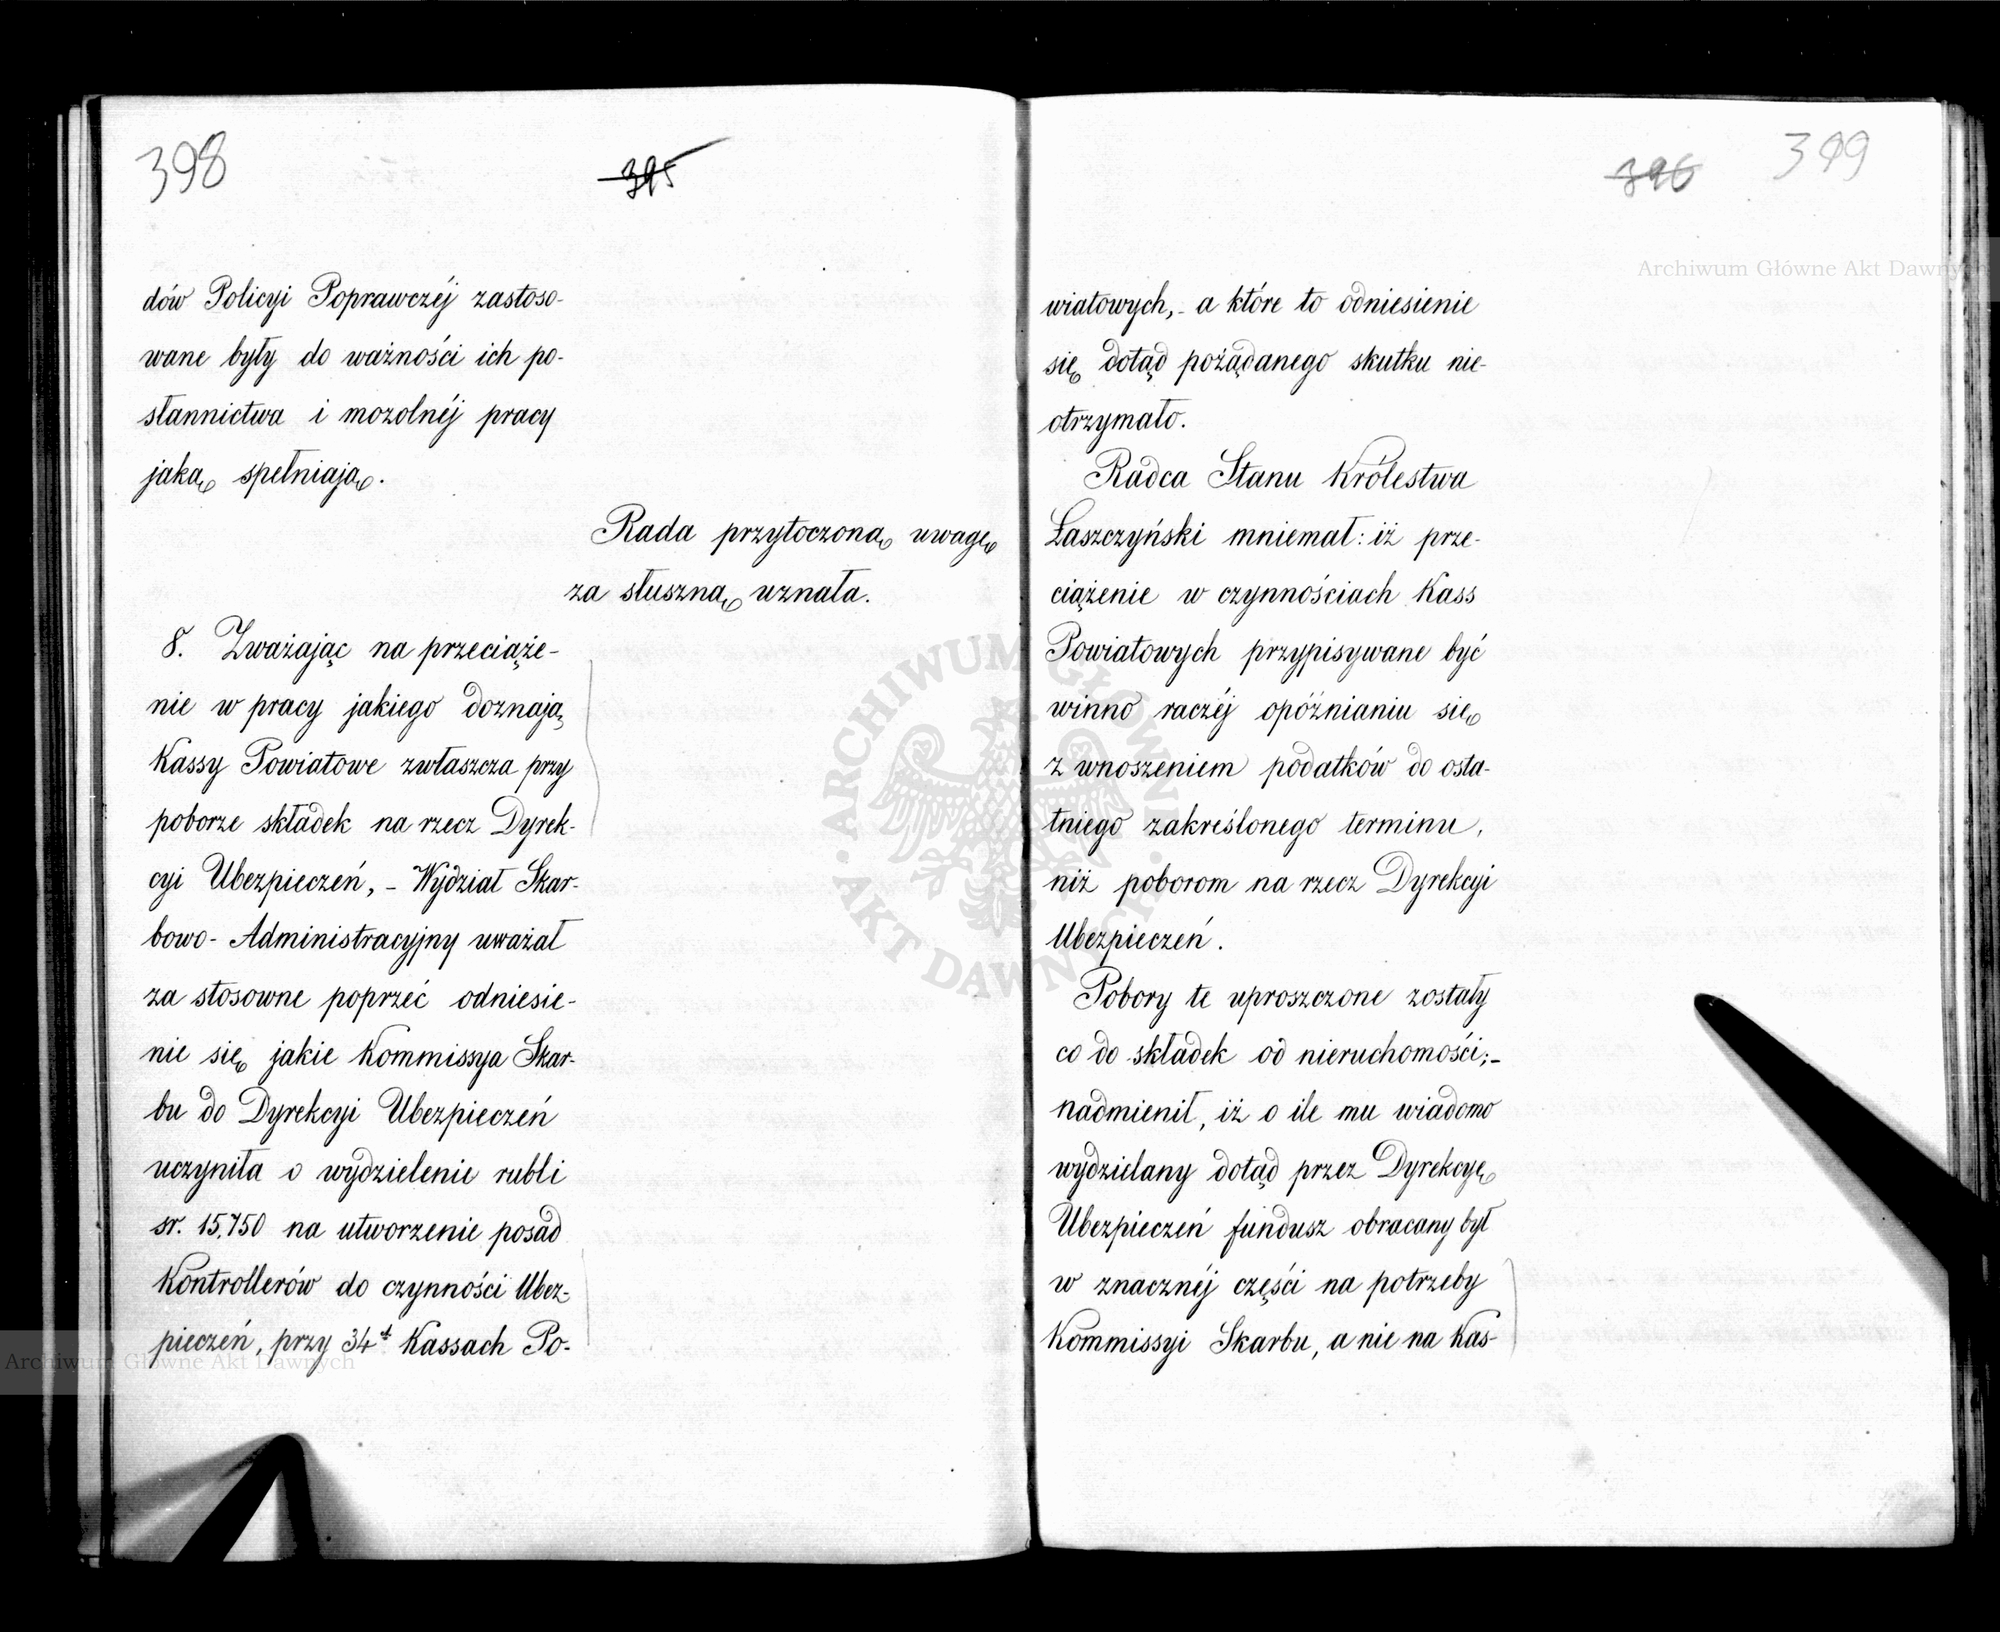 398
395
dów Policyi Poprawczéj zastoso-
wane były do ważności ich po-
słannictwa i mozolnéj pracy
jaką spełniają.
Rada przytoczoną uwagę
za słuszną uznała.
8. Zważając na przeciąże-
nie w pracy jakiego doznają
Kassy Powiatowe zwłaszcza przy
poborze składek na rzecz Dyrek-
cyi Ubezpieczeń, - Wydział Skar-
bowo- Administracyjny uważał
za stosowne poprzeć odniesie-
nie się jakie Kommissya Skar-
bu do Dyrekcyi Ubezpieczeń
uczyniła o wydzielenie rubli
sr. 15,750 na utworzenie posad
Kontrollerów do czynności Ubez-
pieczeń, przy 34ch Kassach Po-
396
399
wiatowych, - a które to odniesienie
się dotąd pożądanego skutku nie-
otrzymało.
Radca Stanu Królestwa
Łaszczyński mniemał: iż prze-
ciążenie w czynnościach Kass
Powiatowych przypisywane być
winno raczéj opóźnianiu się
z wnoszeniem podatków do osta-
tniego zakreślonego terminu,
niż poborom na rzecz Dyrekcyi
Ubezpieczeń.
Pobory te uproszczone zostały
co do składek od nieruchomości; -
nadmienił, iż o ile mu wiadomo
wydzielany dotąd przez Dyrekcyę
Ubezpieczeń fundusz obracany był
w znacznéj części na potrzeby
Kommissyi Skarbu, a nie na Kas-
Archiwum Główne Akt Dawnych
ARCHIWUM GŁÓWNE · AKT DAWNYCH ·
Archiwum Główne Akt Dawnych